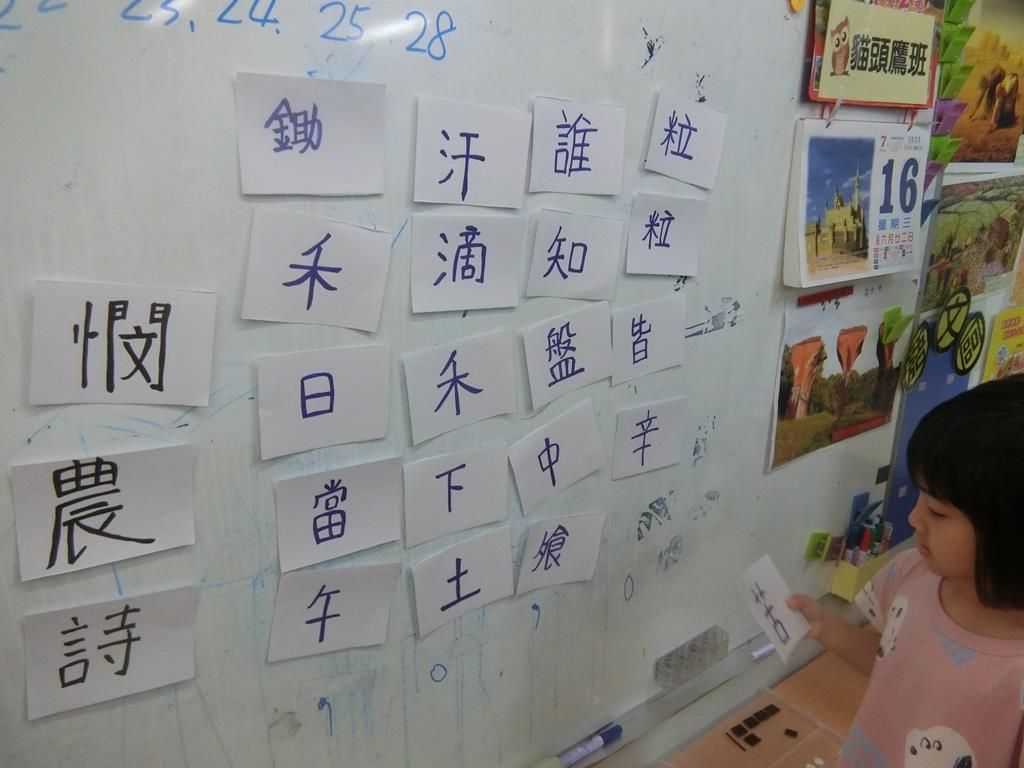 22 23, 24. 25 28
憫農詩
鋤禾日當午
汗滴禾下土
誰知盤中飧
粒粒皆辛
苦
貓頭鷹班
7
2025
16
星期三
六月廿二日
語文